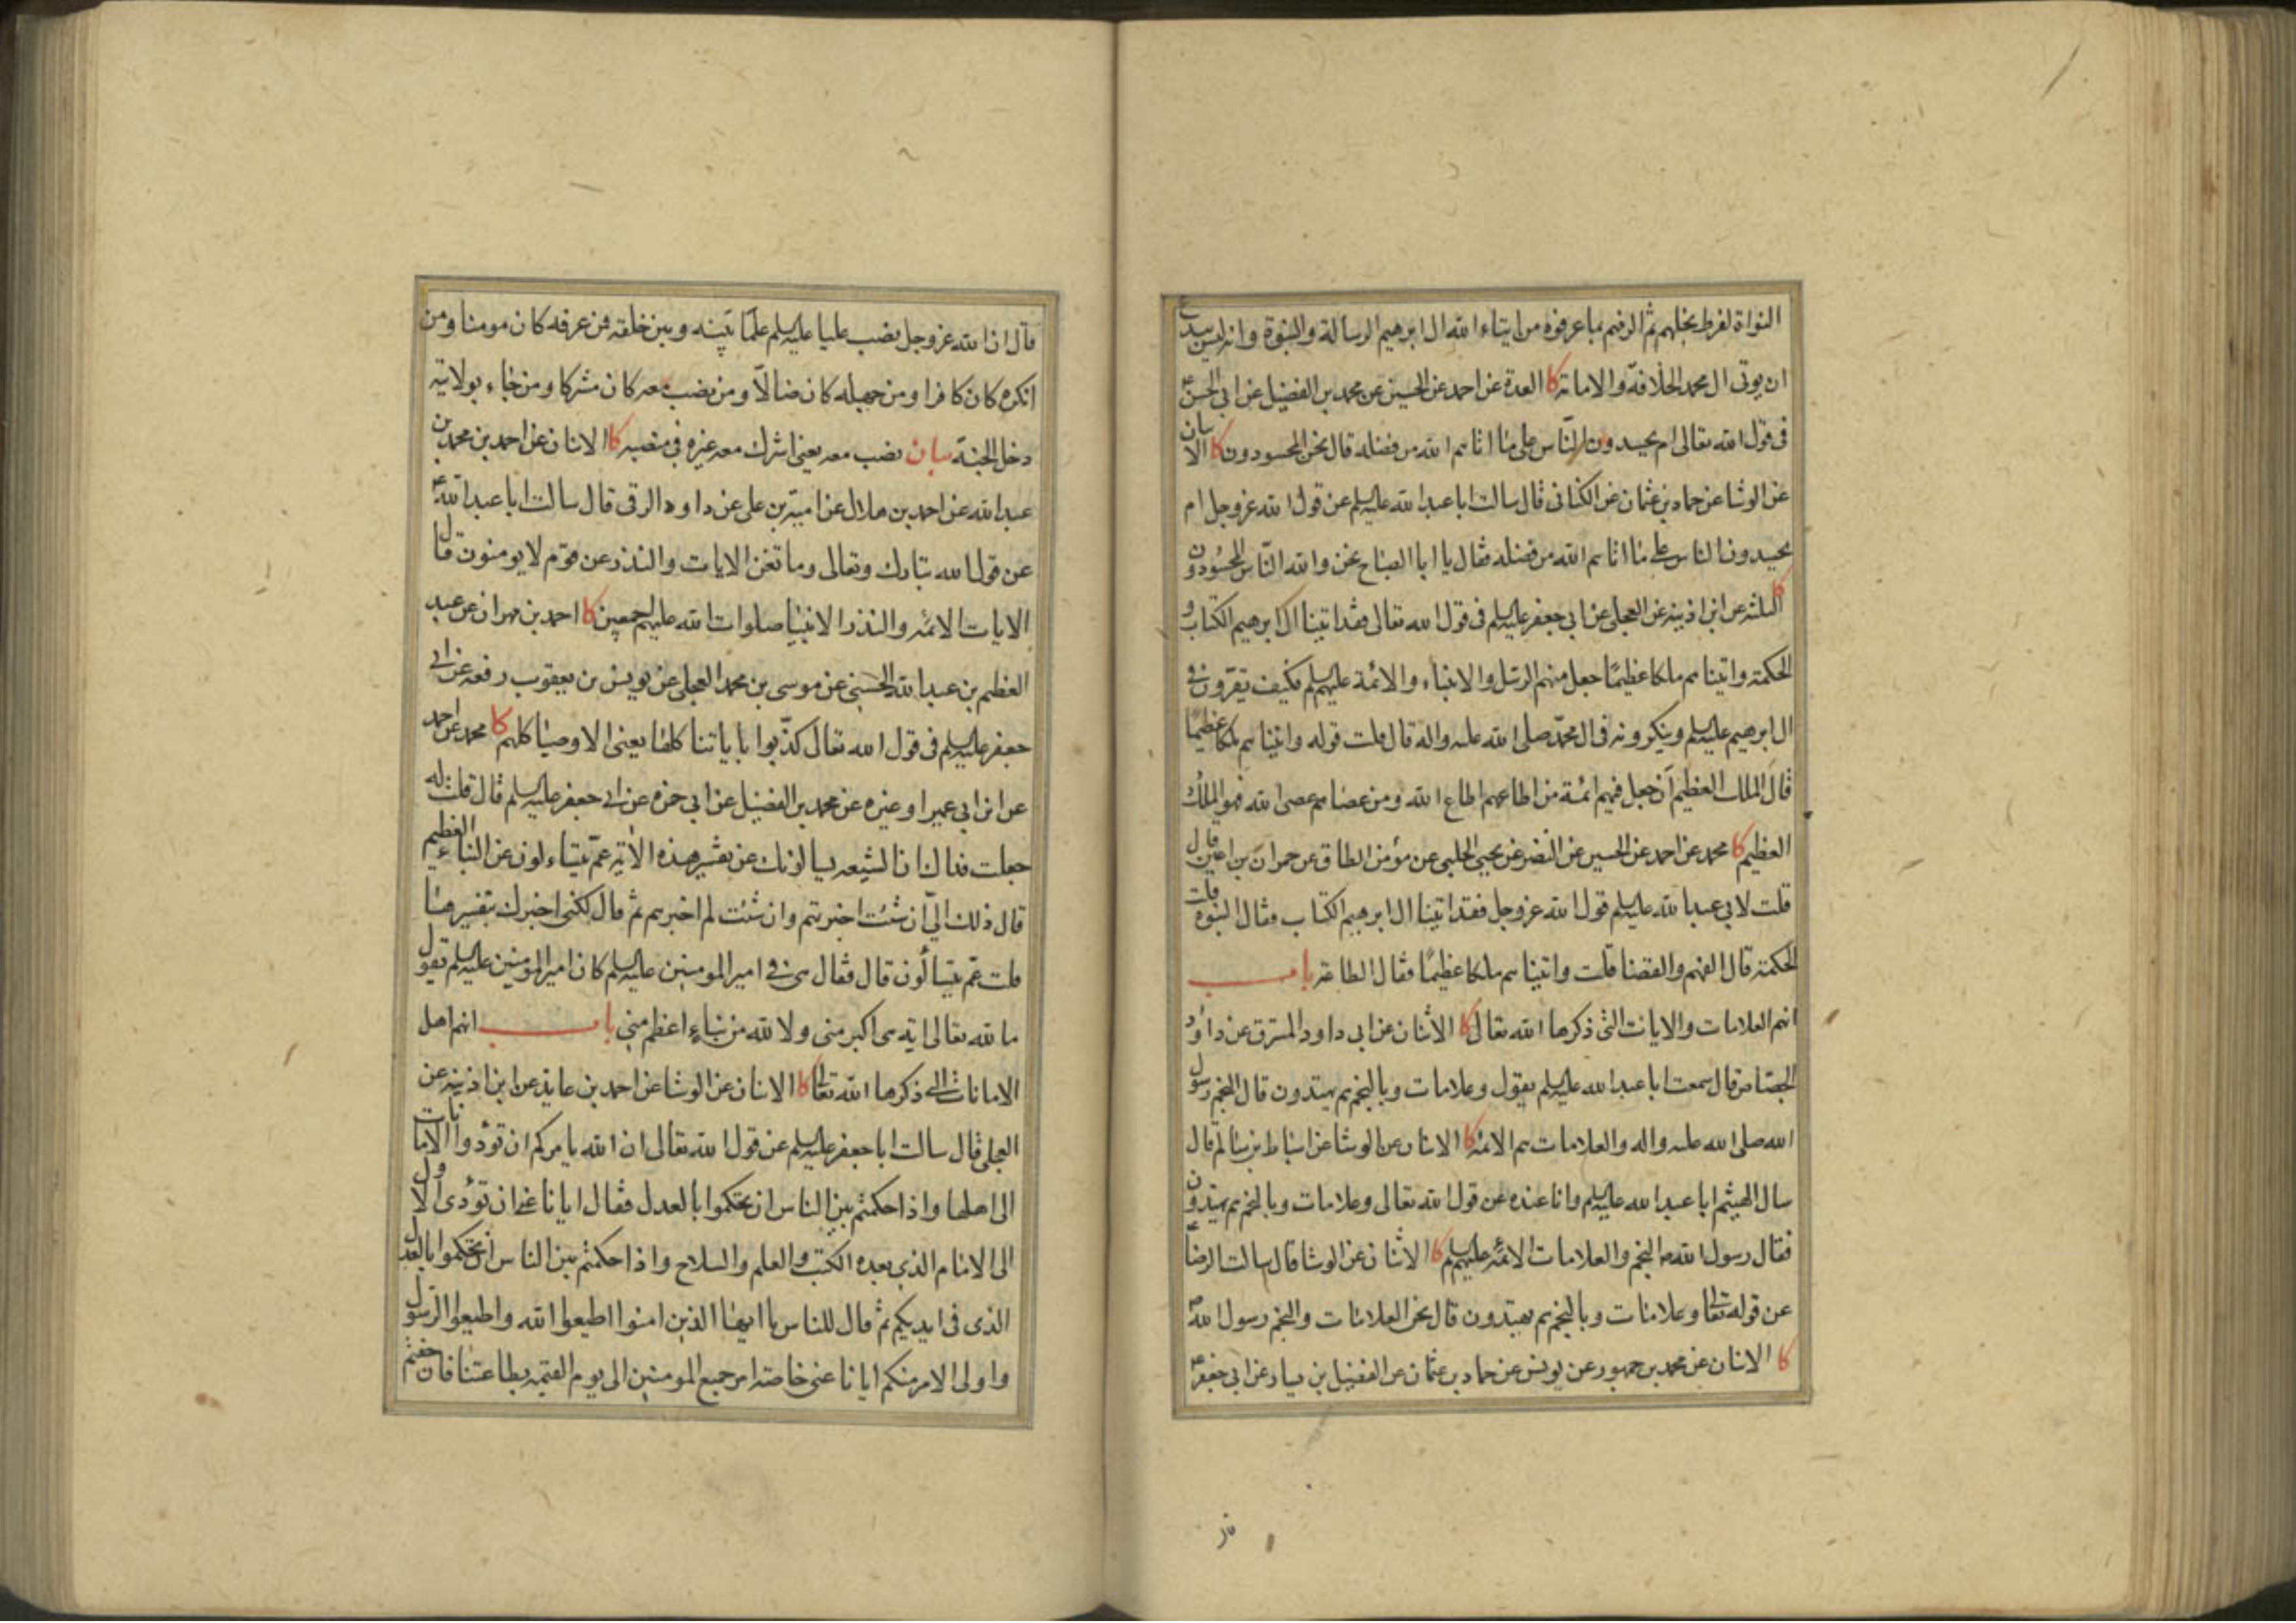 النواة لفرط بخلهم ثم الزمهم بما عرفوه من ايتاء الله ال ابرهيم الرسالة والنبوة وانه ليس ببدع
ان يوتى ال محمد الخلافة والامامة كا العدة عن احمد عن الحسين عن محمد بن الفضيل عن ابى الحسن ع
فى قول الله تعالى ام يحسدون الناس على ما اتاهم الله من فضله قال نحن المحسودون كا الاثنان
عن الوشا عن حماد بن عثمان عن الكنانى قال سالت ابا عبدالله عليه السلم عن قول الله عز وجل ام
يحسدون الناس على ما اتاهم الله من فضله فقال يا ابا الصباح نحن والله الناس المحسودون
كا الثلثه عن ابن اذينه عن العجلى عن ابى جعفر عليه السلم فى قول الله تعالى فقد اتينا ال ابرهيم الكتاب و
الحكمة واتيناهم ملكا عظيمًا جعل منهم الرسل والانبياء والائمة عليهم السلم فكيف يقرون فى
ال ابرهيم عليه السلم وينكرونه فى ال محمّد صلى الله عليه واله قال قلت قوله واتيناهم ملكا عظيمًا
قال الملك العظيم ان جعل فيهم ائمة من اطاعهم اطاع الله ومن عصاهم عصى الله فهو الملك
العظيم كا محمد عن احمد عن الحسين عن النضر عن يحيى الحلبى عن مؤمن الطاق عن حمران بن اعين قال
قلت لابى عبدالله عليه السلم قول الله عز وجل فقد اتينا ال ابرهيم الكتاب فقال النبوة قلت
الحكمة قال الفهم والقضا قلت واتيناهم ملكا عظيمًا فقال الطاعة باب
انهم العلامات والايات التى ذكرها الله تعالى كا الاثنان عن ابى داود المسترق عن داود
الجصاص قال سمعت ابا عبدالله عليه السلم يقول وعلامات وبالنجم هم يهتدون قال النجم رسول
الله صلى الله عليه واله والعلامات هم الائمه كا الاثنان عن الوشا عن اسباط بن سالم قال
سال الهيثم ابا عبدالله عليه السلم وانا عنده عن قول الله تعالى وعلامات وبالنجم هم يهتدون
فقال رسول الله ص النجم والعلامات الائمه عليهم السلم كا الاثنان عن الوشا قال سالت الرضا ع
عن قوله تعالى وعلامات وبالنجم هم يهتدون قال نحن العلامات والنجم رسول الله ص
كا الاثنان عن محمد بن جمهور عن يونس عن حماد بن عثمان عن الفضيل بن يسار عن ابى جعفر ع
قال ان الله عز وجل نصب عليا عليه السلم علمًا بينه وبين خلقه من عرفه كان مومنا ومن
انكره كان كافرا ومن جهله كان ضالّا ومن نصب معه كان مشركا ومن جاء بولايته
دخل الجنة بيان نصب معه يعنى اشرك معه غيره فى منصبه كا الاثنان عن احمد بن محمد بن
عبدالله عن احمد بن هلال عن امية بن على عن داود الرقى قال سالت ابا عبدالله ع
عن قول الله تبارك وتعالى وما تغن الايات والنذر عن قوم لا يومنون قال
الايات الائمه والنذر الانبيا صلوات الله عليهم اجمعين كا احمد بن مهران عن عبد
العظيم بن عبدالله الحسنى عن موسى بن محمد العجلى عن يونس بن يعقوب رفعه عن ابى
جعفر عليه السلم فى قول الله تعالى كذّبوا باياتنا كلها يعنى الاوصيا كلهم كا محمد عن احمد
عن ابن ابى عمير او غيره عن محمد بن الفضيل عن ابى حمزه عن ابى جعفر عليه السلم قال قلت له
جعلت فداك ان الشيعه يسالونك عن تفسير هذه الاية عمّ يتساءلون عن النباء العظيم
قال ذلك اليّ ان شئت اخبرتهم وان شئت لم اخبرهم ثم قال لكنى اخبرك بتفسيرها
قلت عمّ يتسألون قال فقال هى فى امير المومنين عليه السلم كان امير المومنين عليه السلم يقول
ما لله تعالى اية هى اكبر منى ولا لله من نباء اعظم منى باب انهم اهل
الامانات التى ذكرها الله تعالى كا الاثنان عن الوشا عن احمد بن عايذ عن ابن اذينه عن
العجلى قال سالت ابا جعفر عليه السلم عن قول الله تعالى ان الله يامركم ان تؤدوا الامانات
الى اهلها واذا حكمتم بين الناس ان تحكموا بالعدل فقال ايانا عنى ان تؤدى الاول
الى الامام الذى بعده الكتب والعلم والسلاح واذا حكمتم بين الناس ان تحكموا بالعدل
الذى فى ايديكم ثم قال للناس يا ايها الذين امنوا اطيعوا الله واطيعوا الرسول
واولى الامر منكم ايانا عنى خاصة امر جميع المومنين الى يوم القيمه بطاعتنا فان خفتم